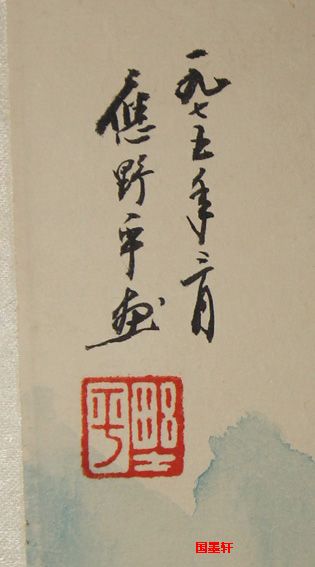 一九七五年三月
應野平画
野平
国墨轩